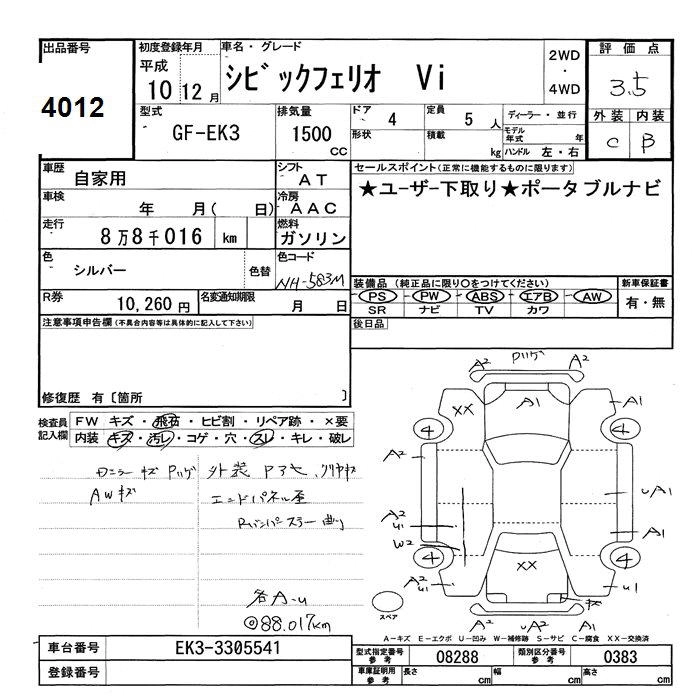 出品番号
4012
初度登録年月
平成
10 12 月
車名・グレード
シビックフェリオ Vi
2WD
・
4WD
評価点
3.5
外装 内装
C B
型式
GF-EK3
排気量
1500
CC
ドア
4
形状
定員
5 人
積載
kg
ディーラー・並行
モデル年式 年
ハンドル 左・右
車歴
自家用
シフト
AT
車検
年 月( 日)
冷房
AAC
走行
8万8千016 km
燃料
ガソリン
色
シルバー
色替
色コード
NH-583M
R券
10,260 円
名変通知期限
月 日
セールスポイント(正常に機能するものに限ります)
★ユーザー下取り★ポータブルナビ
装備品 (純正品に限り○をつけてください)
PS - PW - ABS - エアB - AW
SR ナビ TV カワ
新車保証書
有・無
後日品
注意事項申告欄(不具合内容等は具体的に記入して下さい)
修復歴 有〔箇所 〕
検査員
記入欄
FW キズ・飛石・ヒビ割・リペア跡・×要
内装 キズ・汚レ・コゲ・穴・スレ・キレ・破レ
AWキズ
外装 Pアセ
エンドパネル歪
各A-u
◎88.017km
A2 A2
A1
A1
XX
4 4
A2
uA1
A2
u1
W2
A1
4 4
A2
u1
XX
u1
キズ
A2 A2 A1
スペア
A-キズ E-エクボ U-凹み W-補修跡 S-サビ C-腐食 XX-交換済
車台番号
EK3-3305541
登録番号
型式指定番号
参考
08288
類別区分番号
参考
0383
車庫証明用
参考
長さ cm
幅 cm
高さ cm